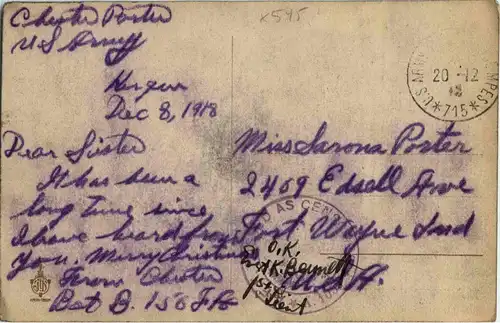 Chester Porter
U S Army
x545
Dec 8, 1918
Dear Sister
It has been a
long time since
I have heard from
you. Merry Christmas
From Chester
Bat D. 158 F A
Miss Sarona Porter
2409 Edsell Ave
Fort Wayne Ind
U.S.A.
20 12
*715*
AS CEN
O.K.
K. Bennett
1st
Lieut